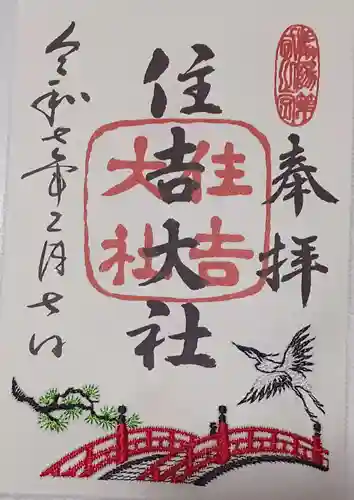 奉拝
住吉大社
住吉大社
令和七年二月七日